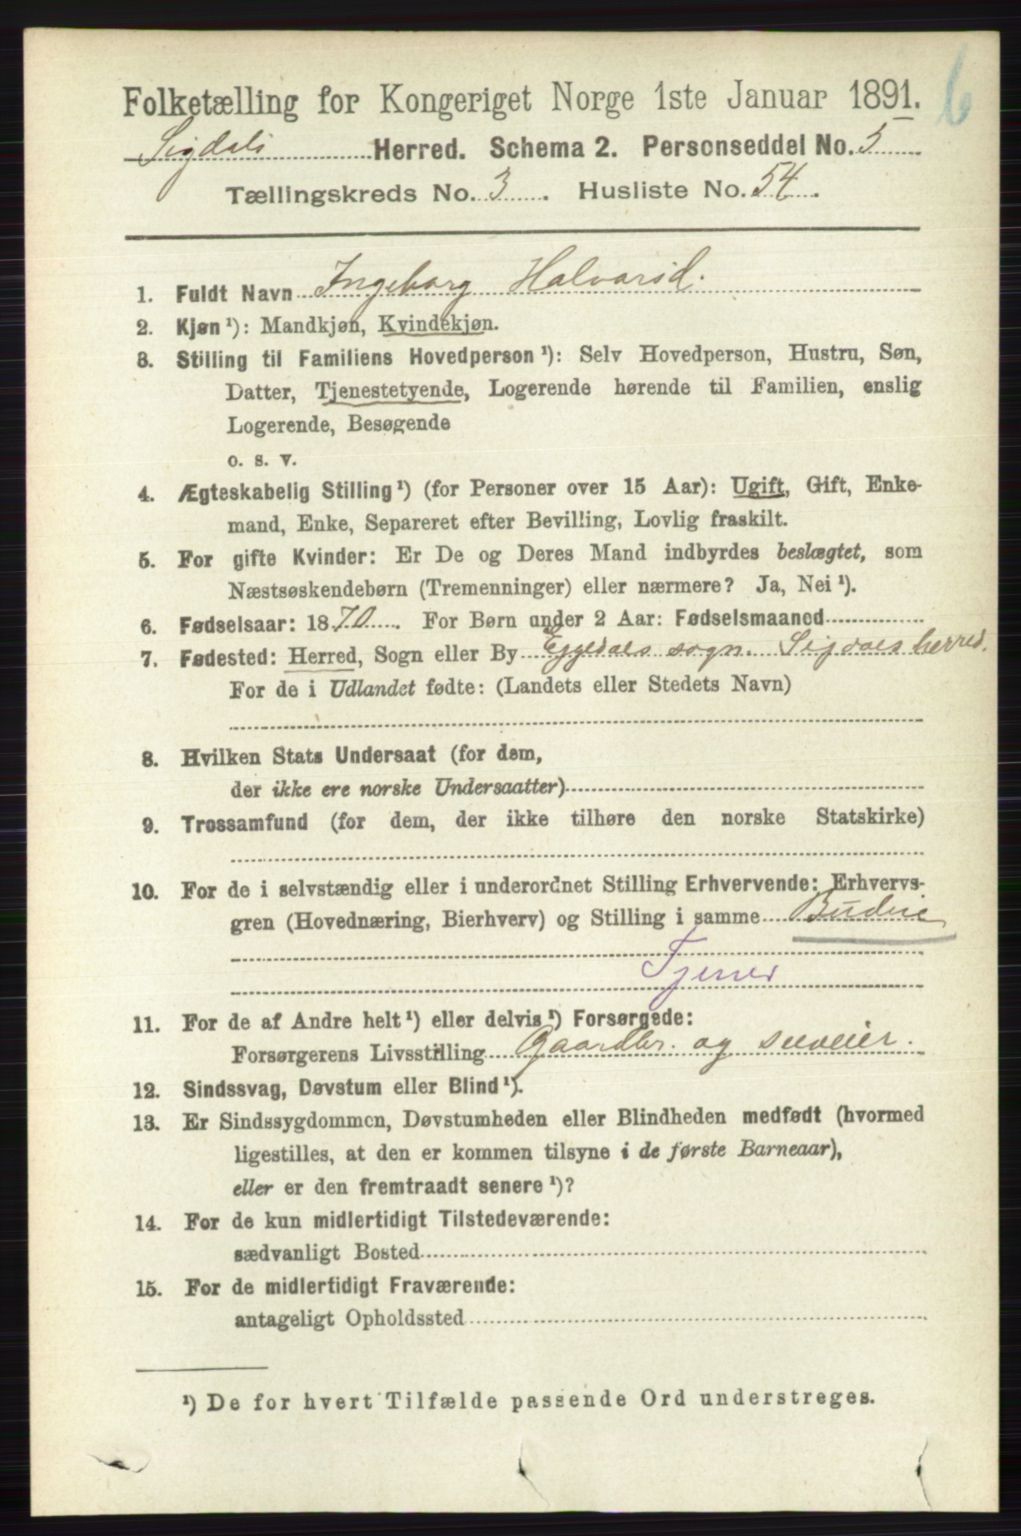 6
Folketælling for Kongeriget Norge 1ste Januar 1891.
Sigdals Herred. Schema 2. Personseddel No. 5
Tællingskreds No. 3. Husliste No. 54.
1. Fuldt Navn Ingeborg Halvarsd.
2. Kjøn¹): Mandkjøn, Kvindekjøn.
3. Stilling til Familiens Hovedperson¹): Selv Hovedperson, Hustru, Søn,
Datter, Tjenestetyende, Logerende hørende til Familien, enslig
Logerende, Besøgende
o. s. v.
4. Ægteskabelig Stilling¹) (for Personer over 15 Aar): Ugift, Gift, Enke-
mand, Enke, Separeret efter Bevilling, Lovlig fraskilt.
5. For gifte Kvinder: Er De og Deres Mand indbyrdes beslægtet, som
Næstsøskendebørn (Tremenninger) eller nærmere? Ja, Nei¹).
6. Fødselsaar: 1870. For Børn under 2 Aar: Fødselsmaaned
7. Fødested: Herred, Sogn eller By Eggedals sogn. Sigdals herred.
For de i Udlandet fødte: (Landets eller Stedets Navn)
8. Hvilken Stats Undersaat (for dem,
der ikke ere norske Undersaatter)
9. Trossamfund (for dem, der ikke tilhøre den norske Statskirke)
10. For de i selvstændig eller i underordnet Stilling Erhvervende: Erhvervs-
gren (Hovednæring, Bierhverv) og Stilling i samme Budeie
Tjener
11. For de af Andre helt¹) eller delvis¹) Forsørgede:
Forsørgerens Livsstilling Gaardbr. og selveier.
12. Sindssvag, Døvstum eller Blind¹).
13. Er Sindssygdommen, Døvstumheden eller Blindheden medfødt (hvormed
ligestilles, at den er kommen tilsyne i de første Barneaar),
eller er den fremtraadt senere¹)?
14. For de kun midlertidigt Tilstedeværende:
sædvanligt Bosted
15. For de midlertidigt Fraværende:
antageligt Opholdssted
¹) De for hvert Tilfælde passende Ord understreges.